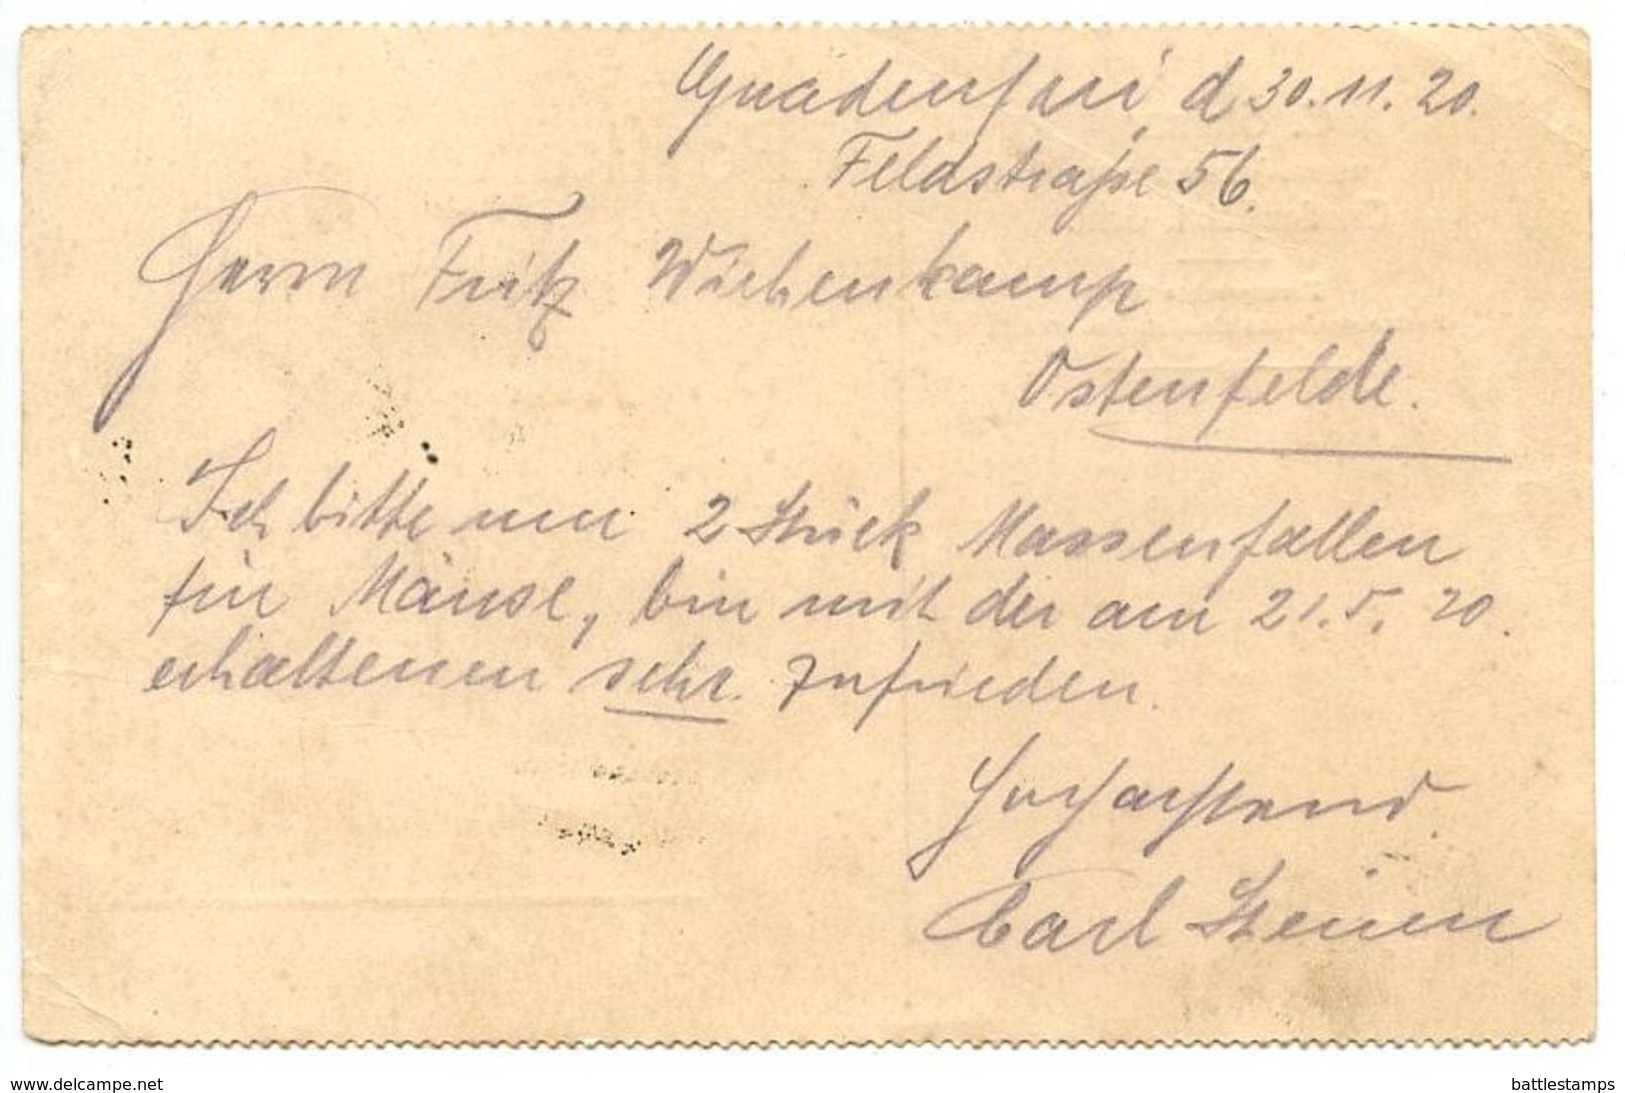 Gnadenfrei, d 30.11.20.
Feldstraße 56.
Herrn Fritz Wiehenkamp
Ostenfelde.
Ich bitte um 2 Stück Massenfallen
für Mäuse, bin mit der am 21.5.20.
erhaltenen sehr zufrieden.
Hochachtend
Carl
www.delcampe.net
battlestamps